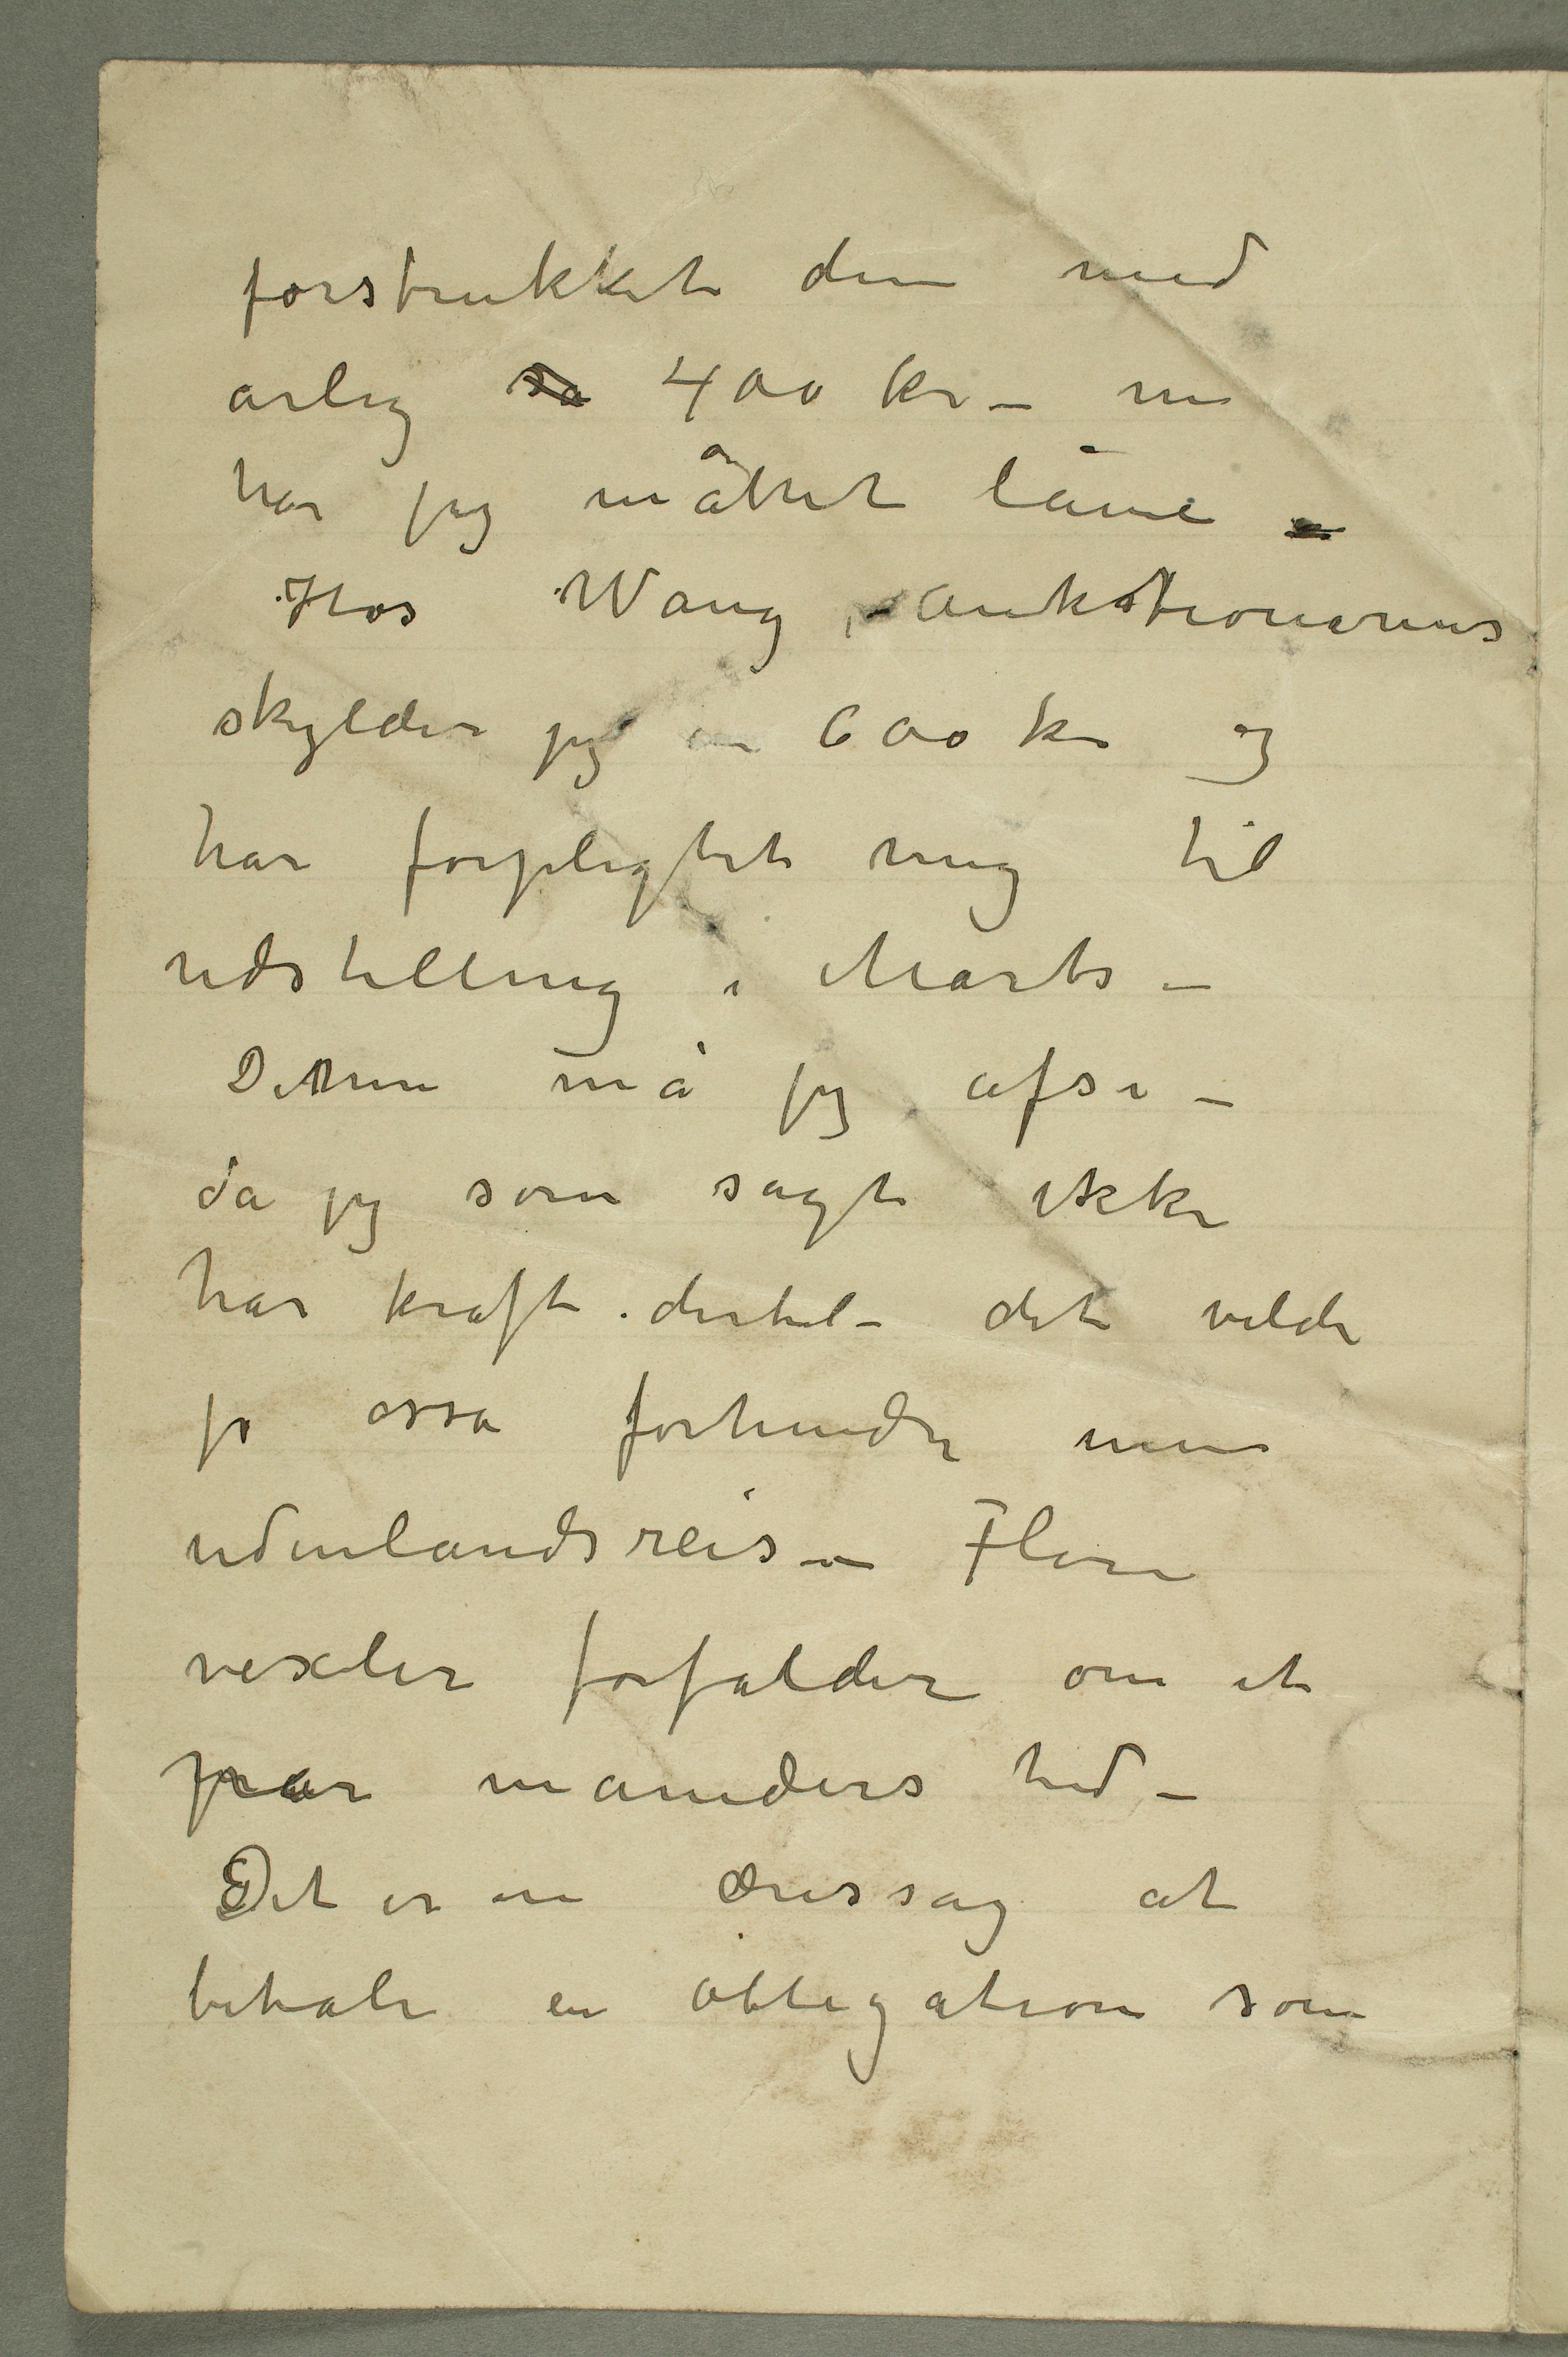 forstrukket dem med
årlig 400 kr – nu
har jeg måttet låne
Hos Wang, auktionarius
skylder jeg en 600 kr og
har forpligtet mig til
udstilling i Marts –
Denne må jeg afse –
da jeg som sagt ikke
har kraft dertil – det vilde
jo osså forhindre min
udenlandsreise – Flere
vexler forfalder om et
par maneders tid –
Det er en æressag at
betale en obligation som